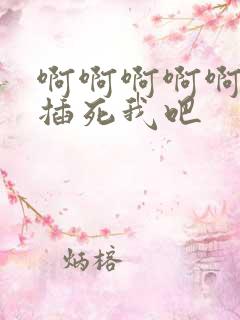 啊啊啊啊啊
插死我吧
炳榕